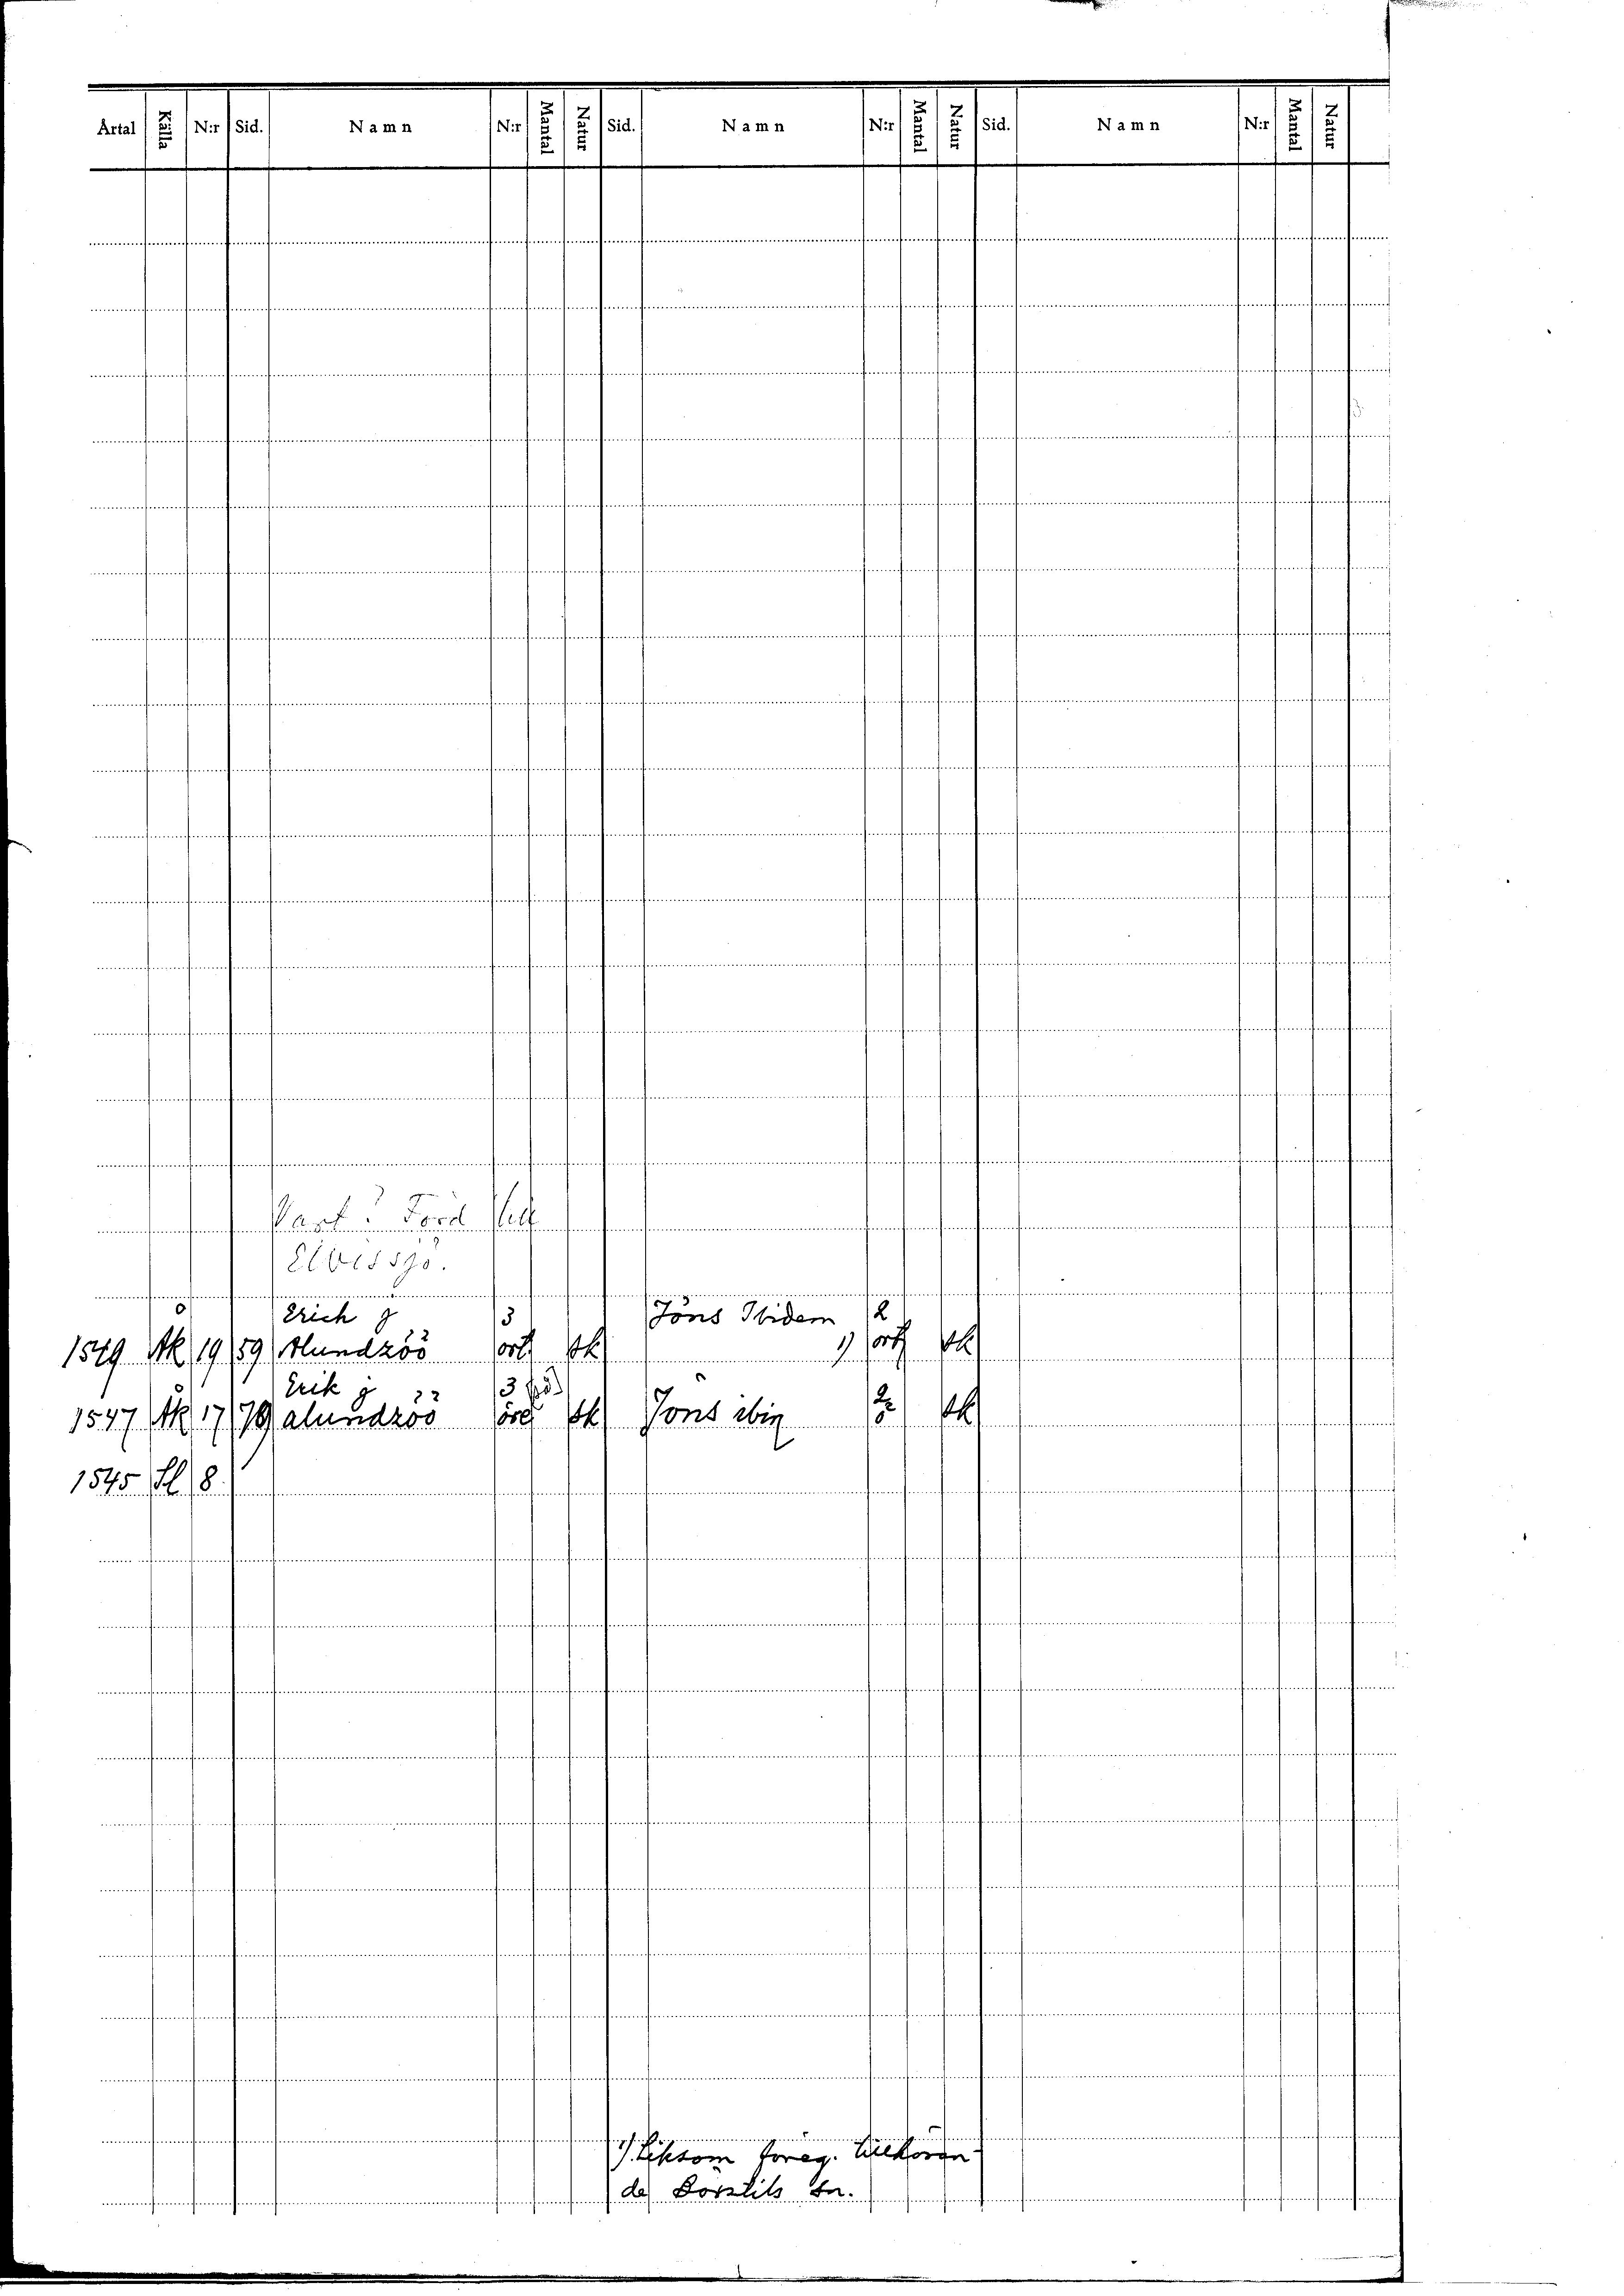 Årtal Källa N:r Sid. Namn N:r Mantal Natur Sid. Namn N:r Mantal Natur Sid. Namn N:r Mantal Natur
Erich 3 Jöns Ibidem 2
1549 19 59 Alundzöö ort sk 1) ort sk
Erik 3
1547 17 79 alundzöö sk Jöns ibin 2 sk
1545 Sl 8
1) Liksom föreg. tillhöran-
de Börstils sn.